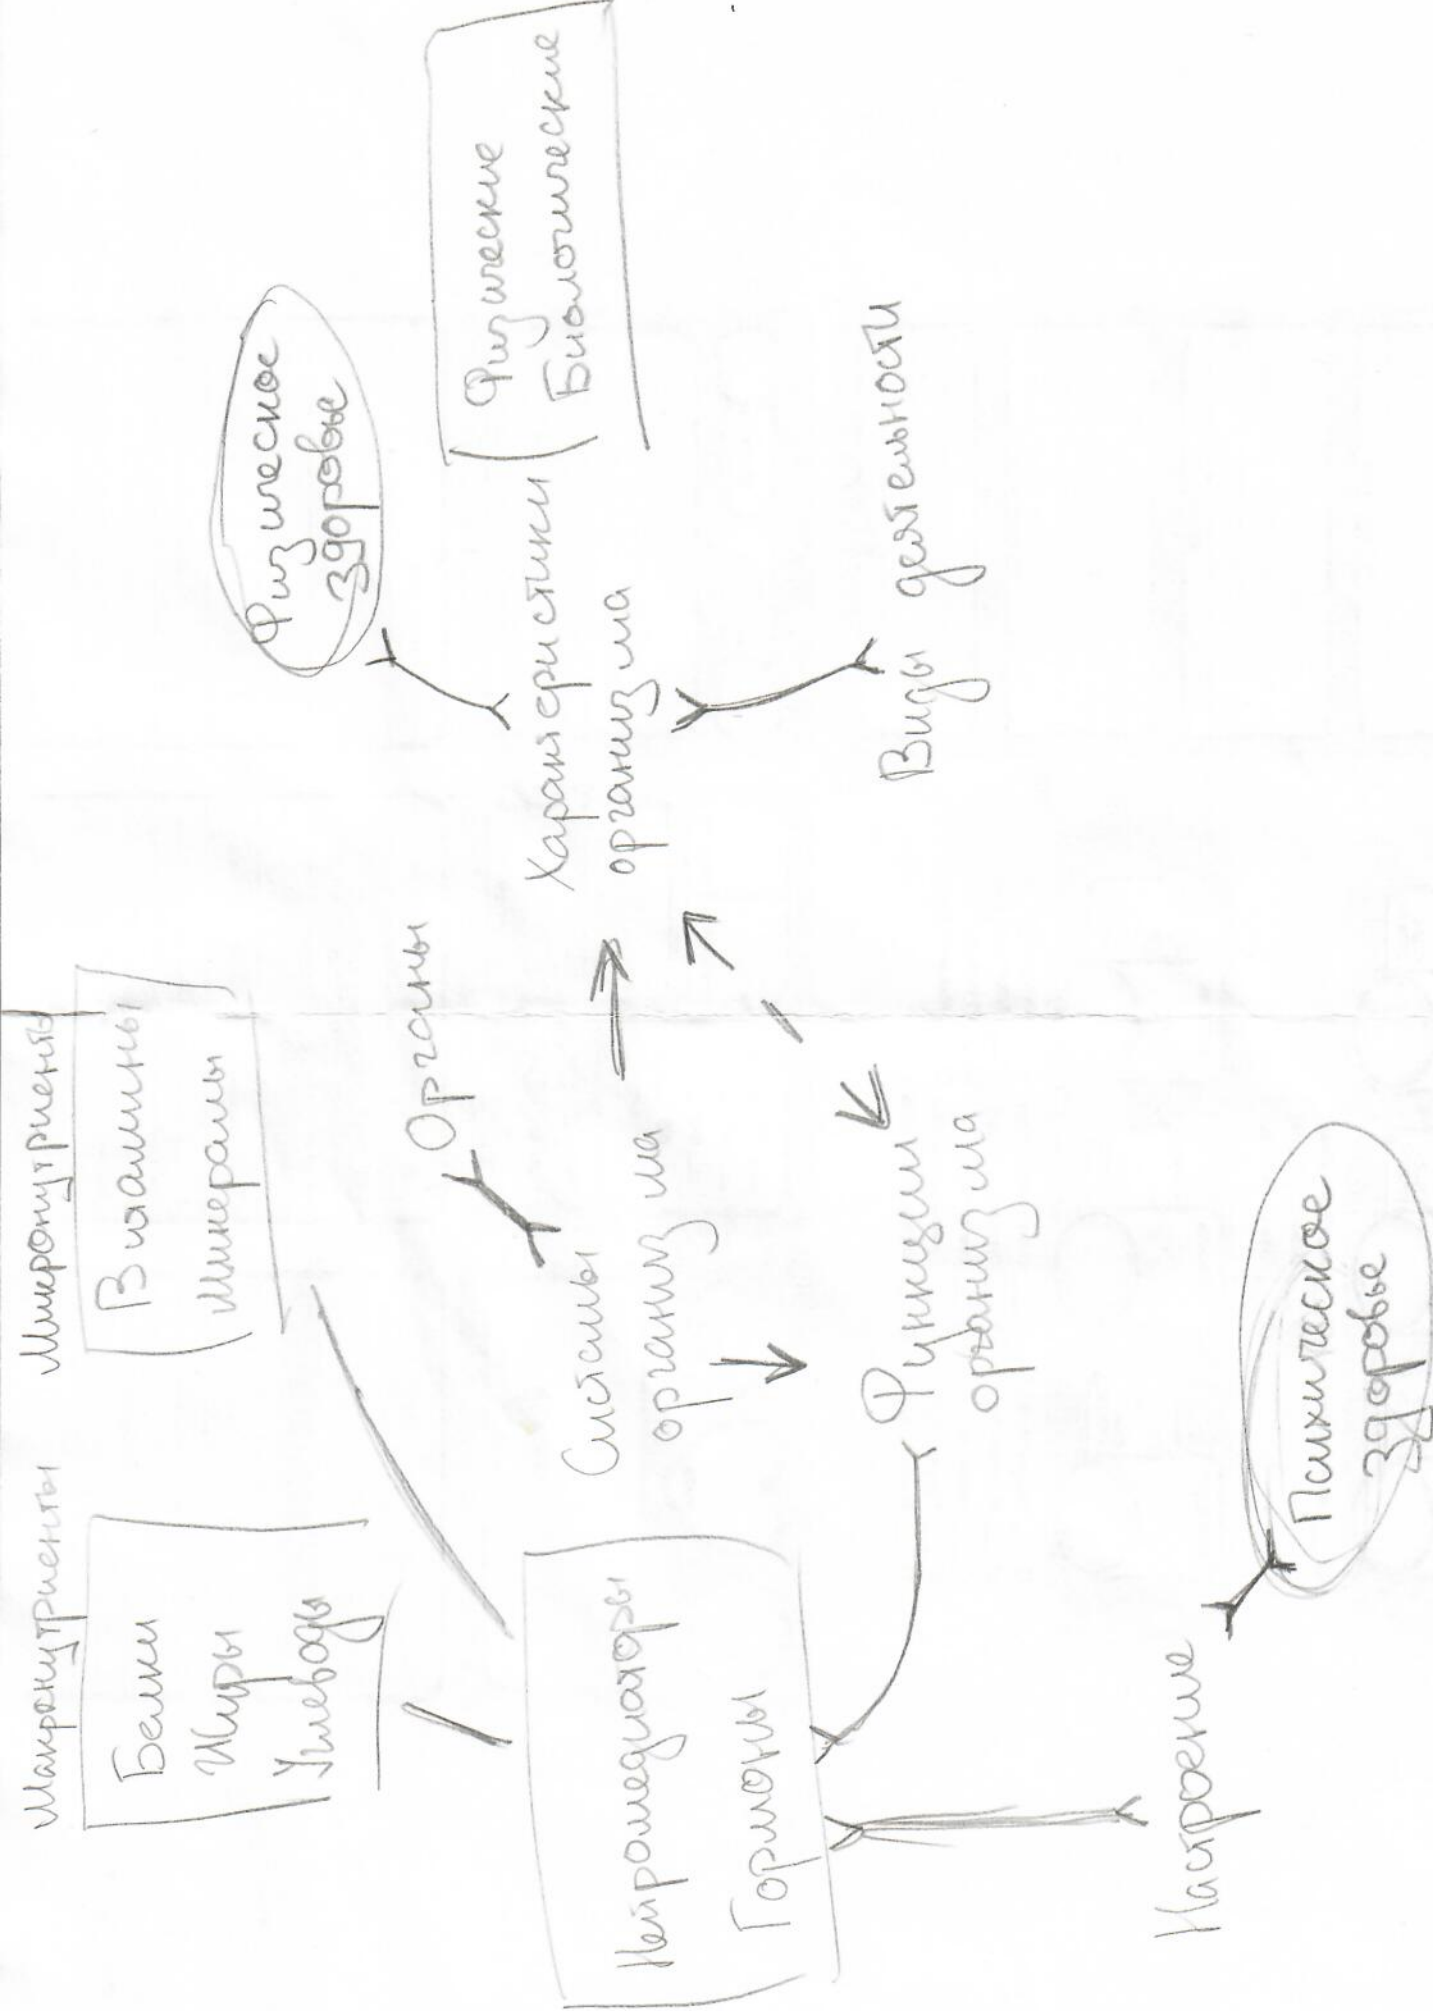 Макронутриенты
Белки
Жиры
Углеводы
Микронутриенты
Витамины
Минералы
Нейромедиаторы
Гормоны
Системы
организма
Органы
Характеристики
организма
Физические
Биологические
Физическое
здоровье
Функции
организма
Виды деятельности
Настроение
Психическое
здоровье